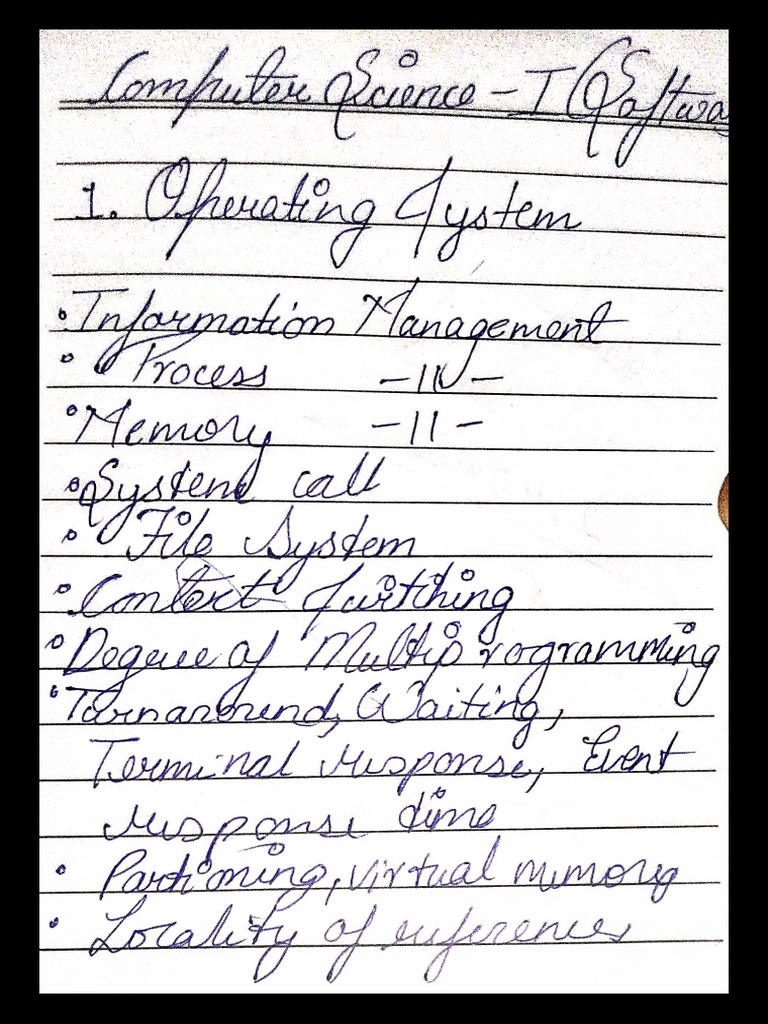 Computer Science - I (Softwa
1. Operating System
• Information Management
• Process -11-
• Memory -11-
• System call
• File System
• Context switching
• Degree of Multiprogramming
• Turnaround, Waiting,
Terminal response, Event
response time
• Partioning, virtual memory
• Locality of references